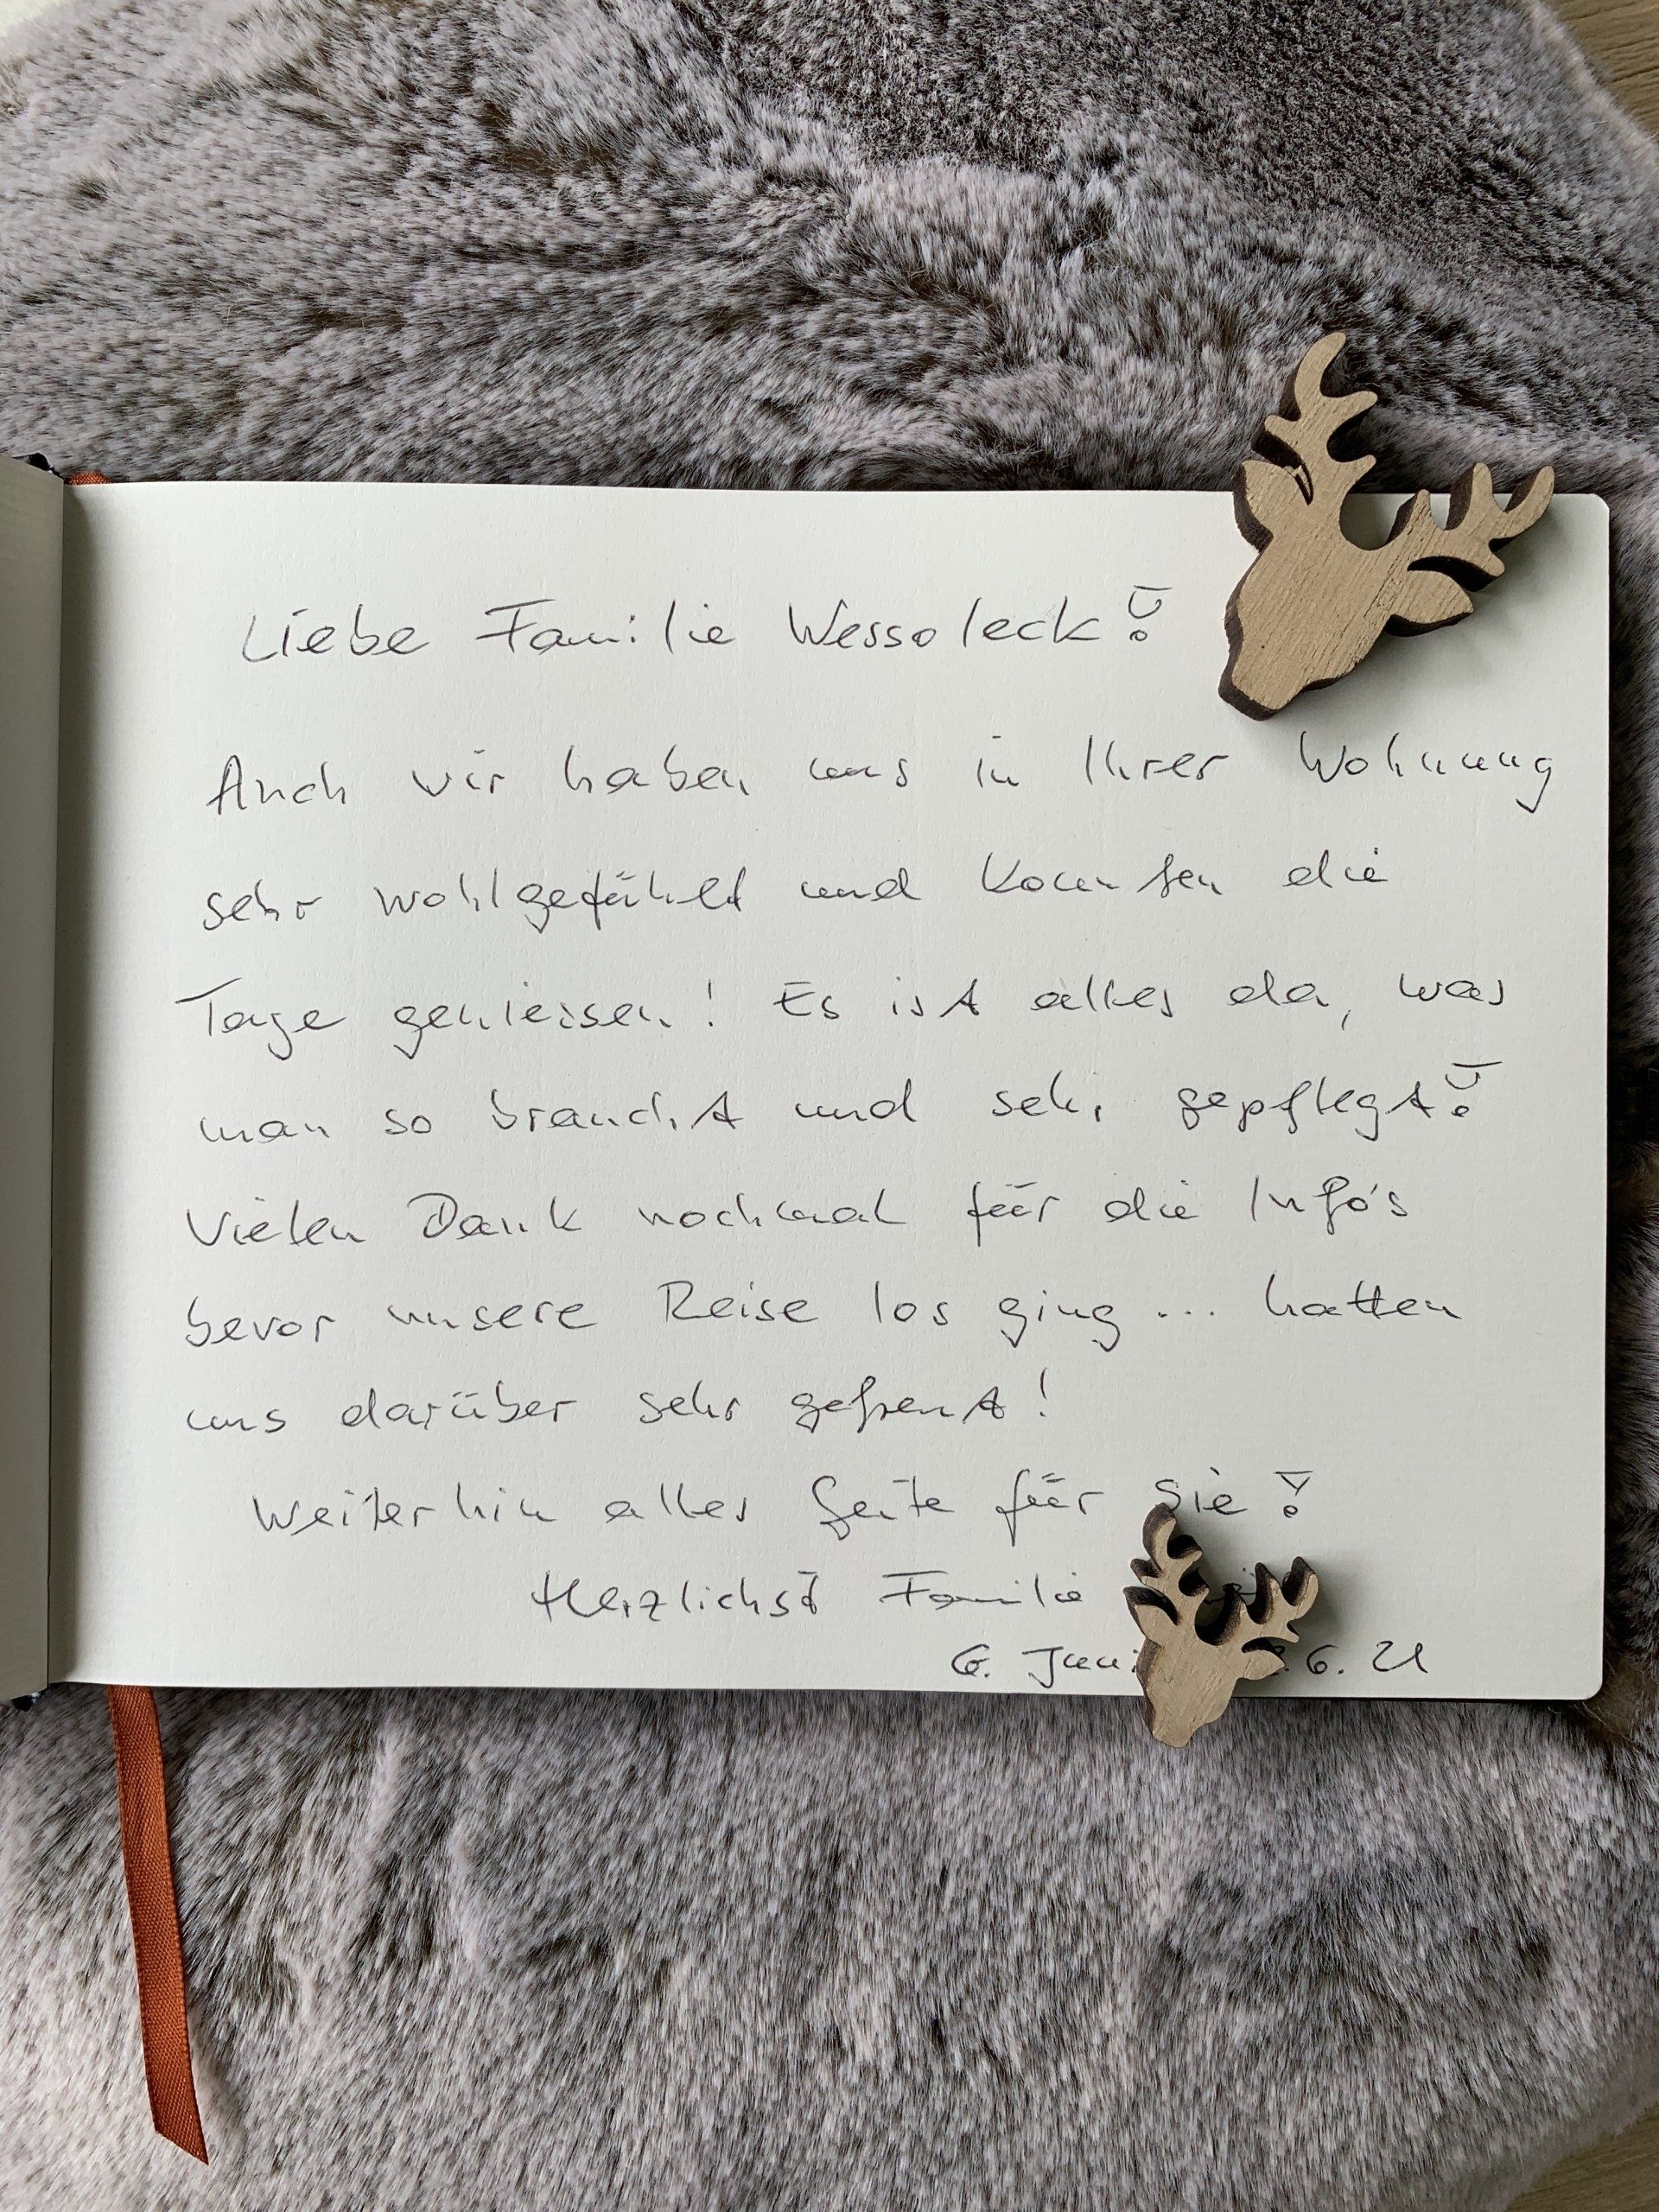 Liebe Familie Wessoleck!
Auch wir haben uns in Ihrer Wohnung
sehr wohlgefühlt und konnten die
Tage geniessen! Es ist alles da, was
man so braucht und sehr gepflegt!
Vielen Dank nochmal für die Info's
bevor unsere Reise los ging... hatten
uns darüber sehr gefreut!
Weiterhin alles Gute für Sie!
Herzlichst Familie
6. Juni .6.21